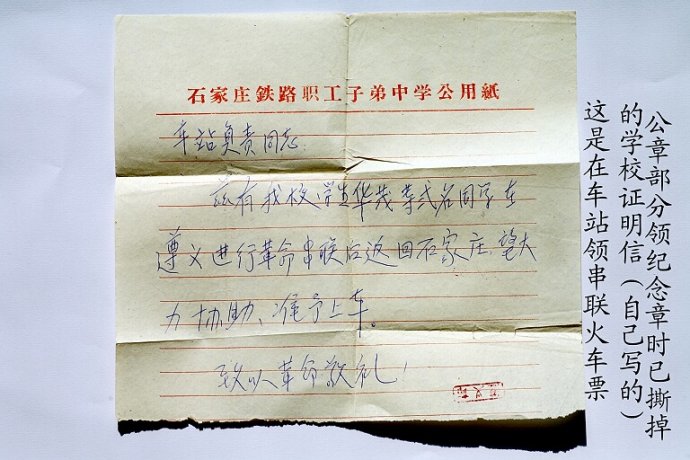 石家庄鉄路职工子弟中学公用紙
车站负责同志:
兹有我校学生华茂等弍名同学在
遵义进行革命串联后返回石家庄,望大
力协助、准予上车。
致以革命敬礼!
这是在车站领串联火车票
的学校证明信(自己写的)
公章部分领纪念章时已撕掉